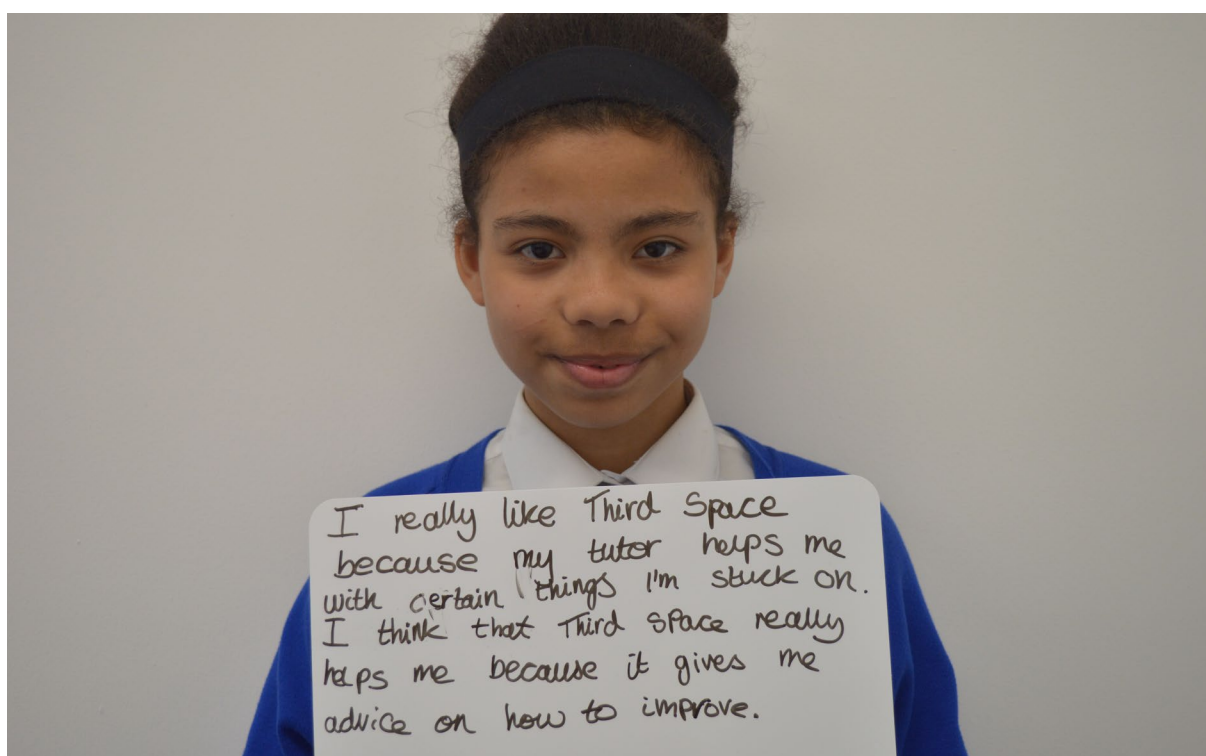 I really like Third Space
because my tutor helps me
with certain things I'm stuck on.
I think that Third Space really
helps me because it gives me
advice on how to improve.